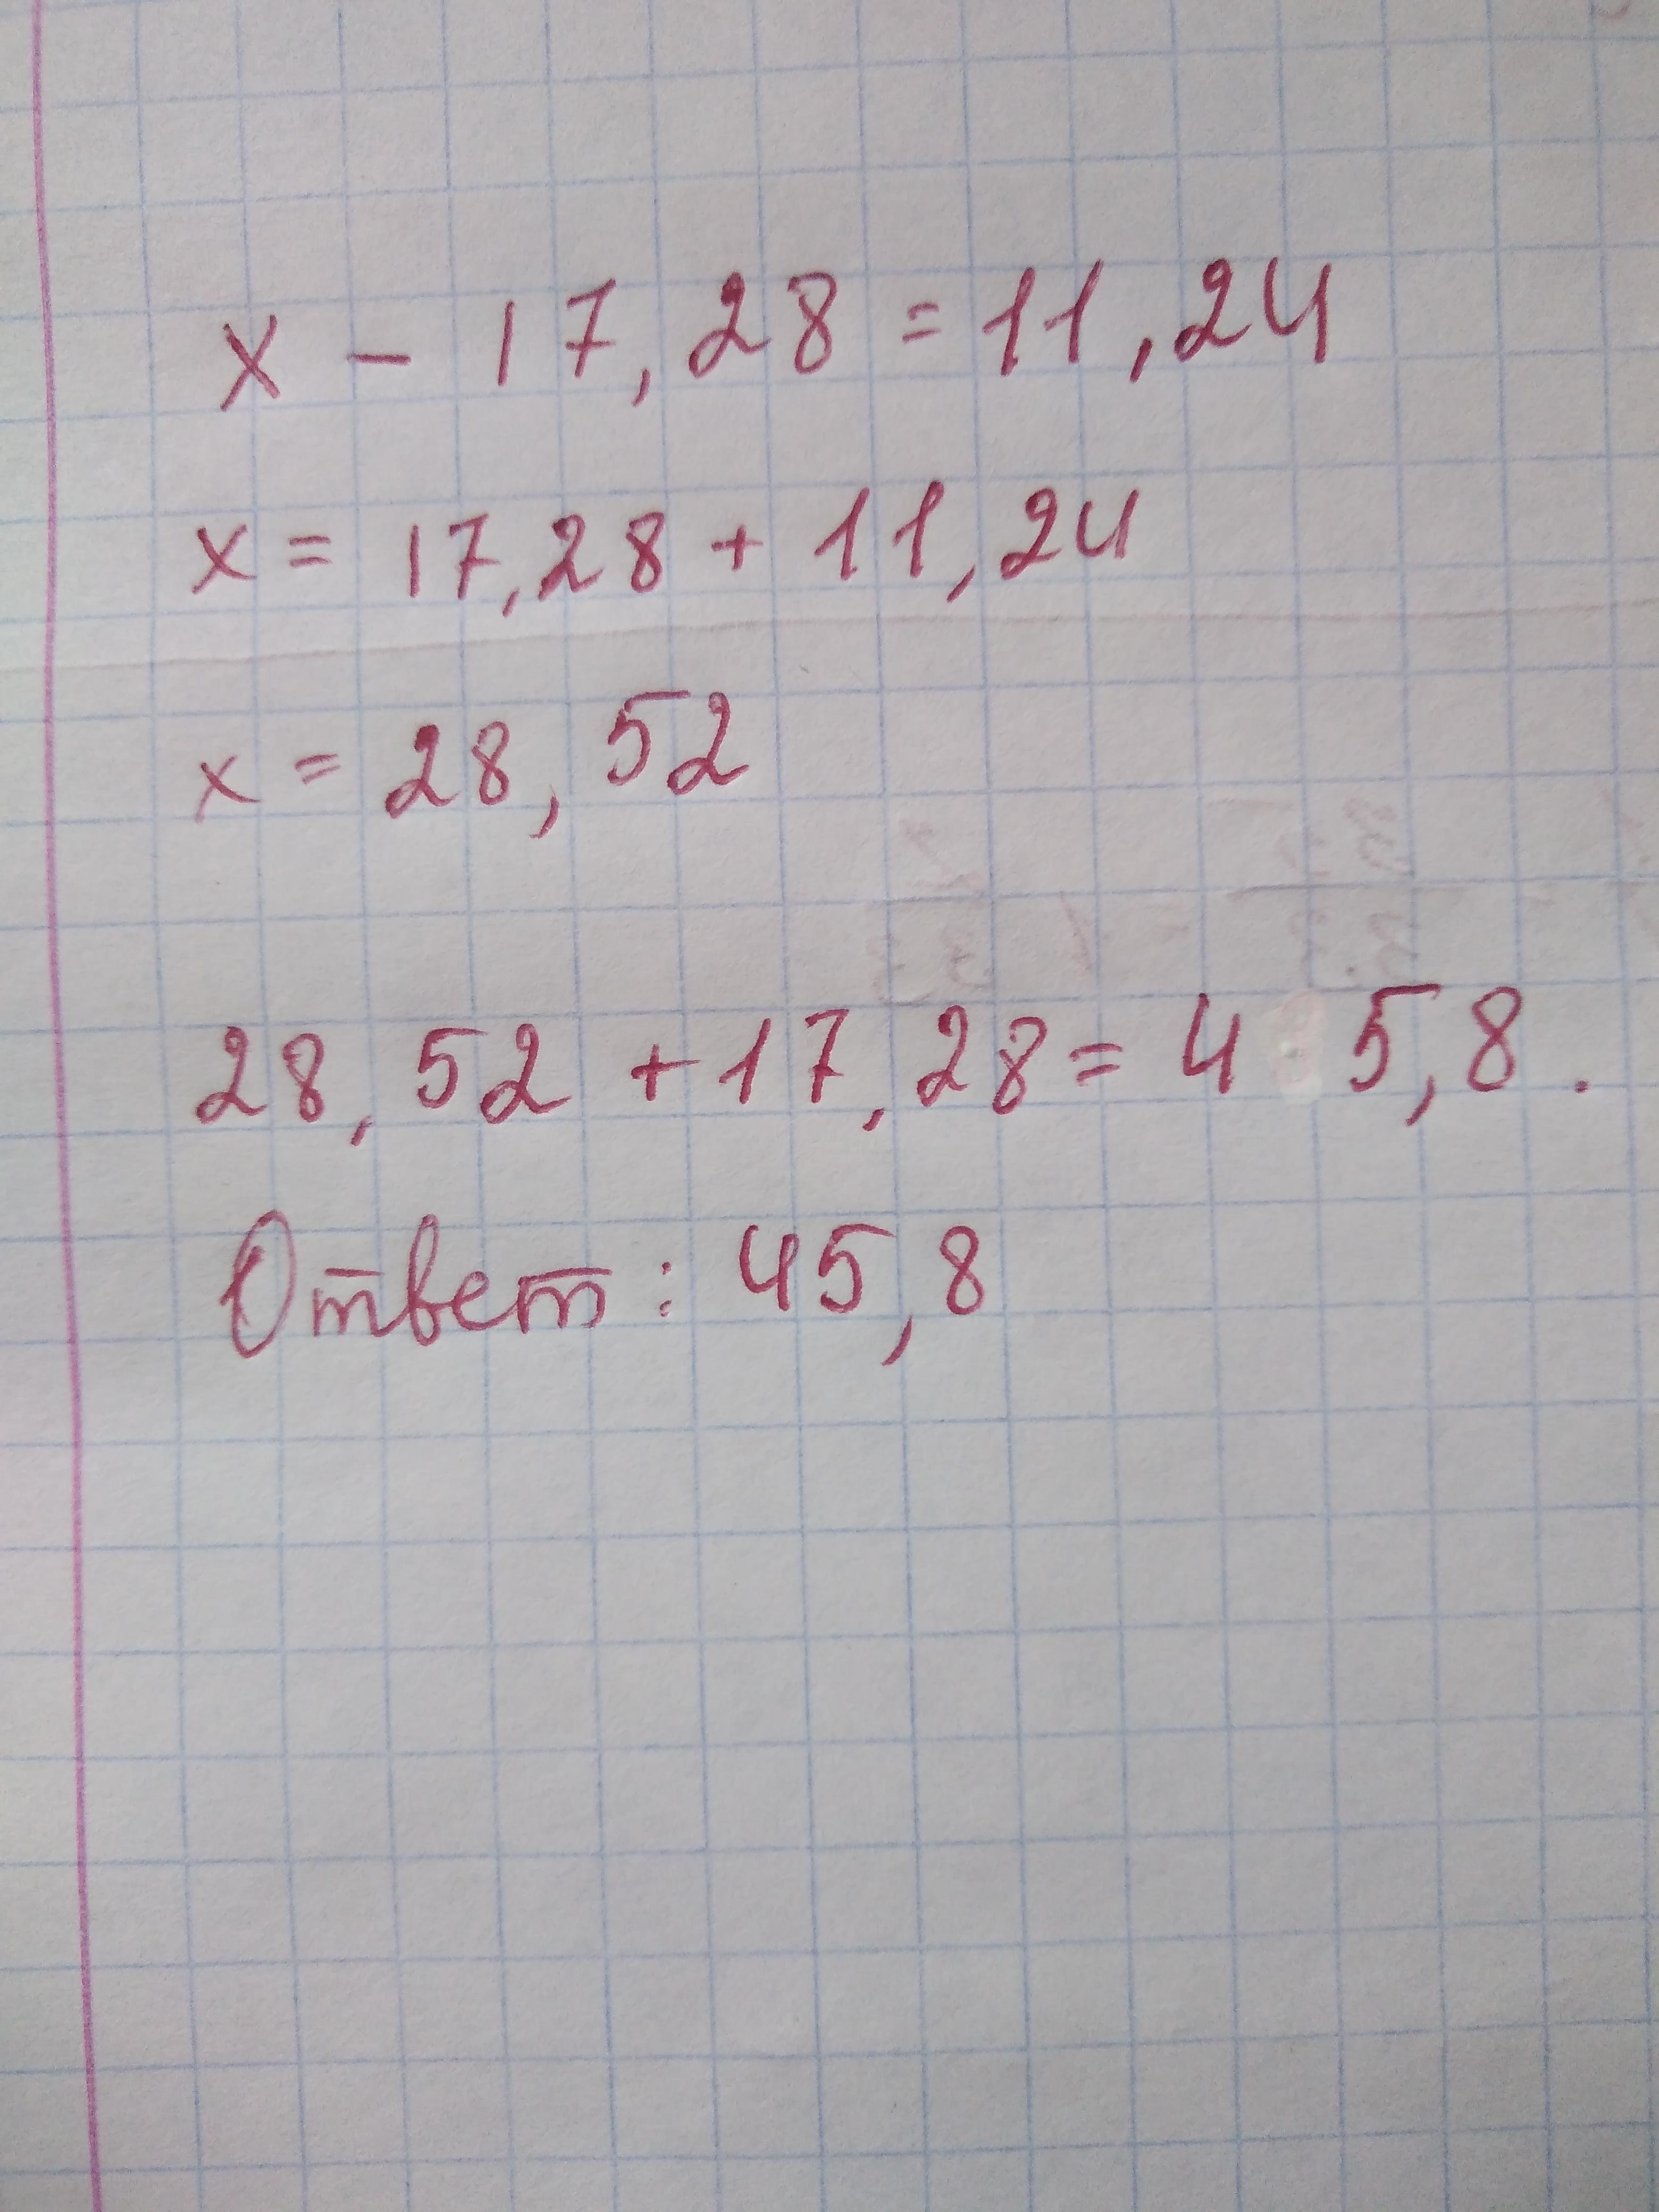 x - 17,28 = 11,24
x = 17,28 + 11,24
x = 28,52
28,52 + 17,28 = 45,8.
Ответ: 45,8